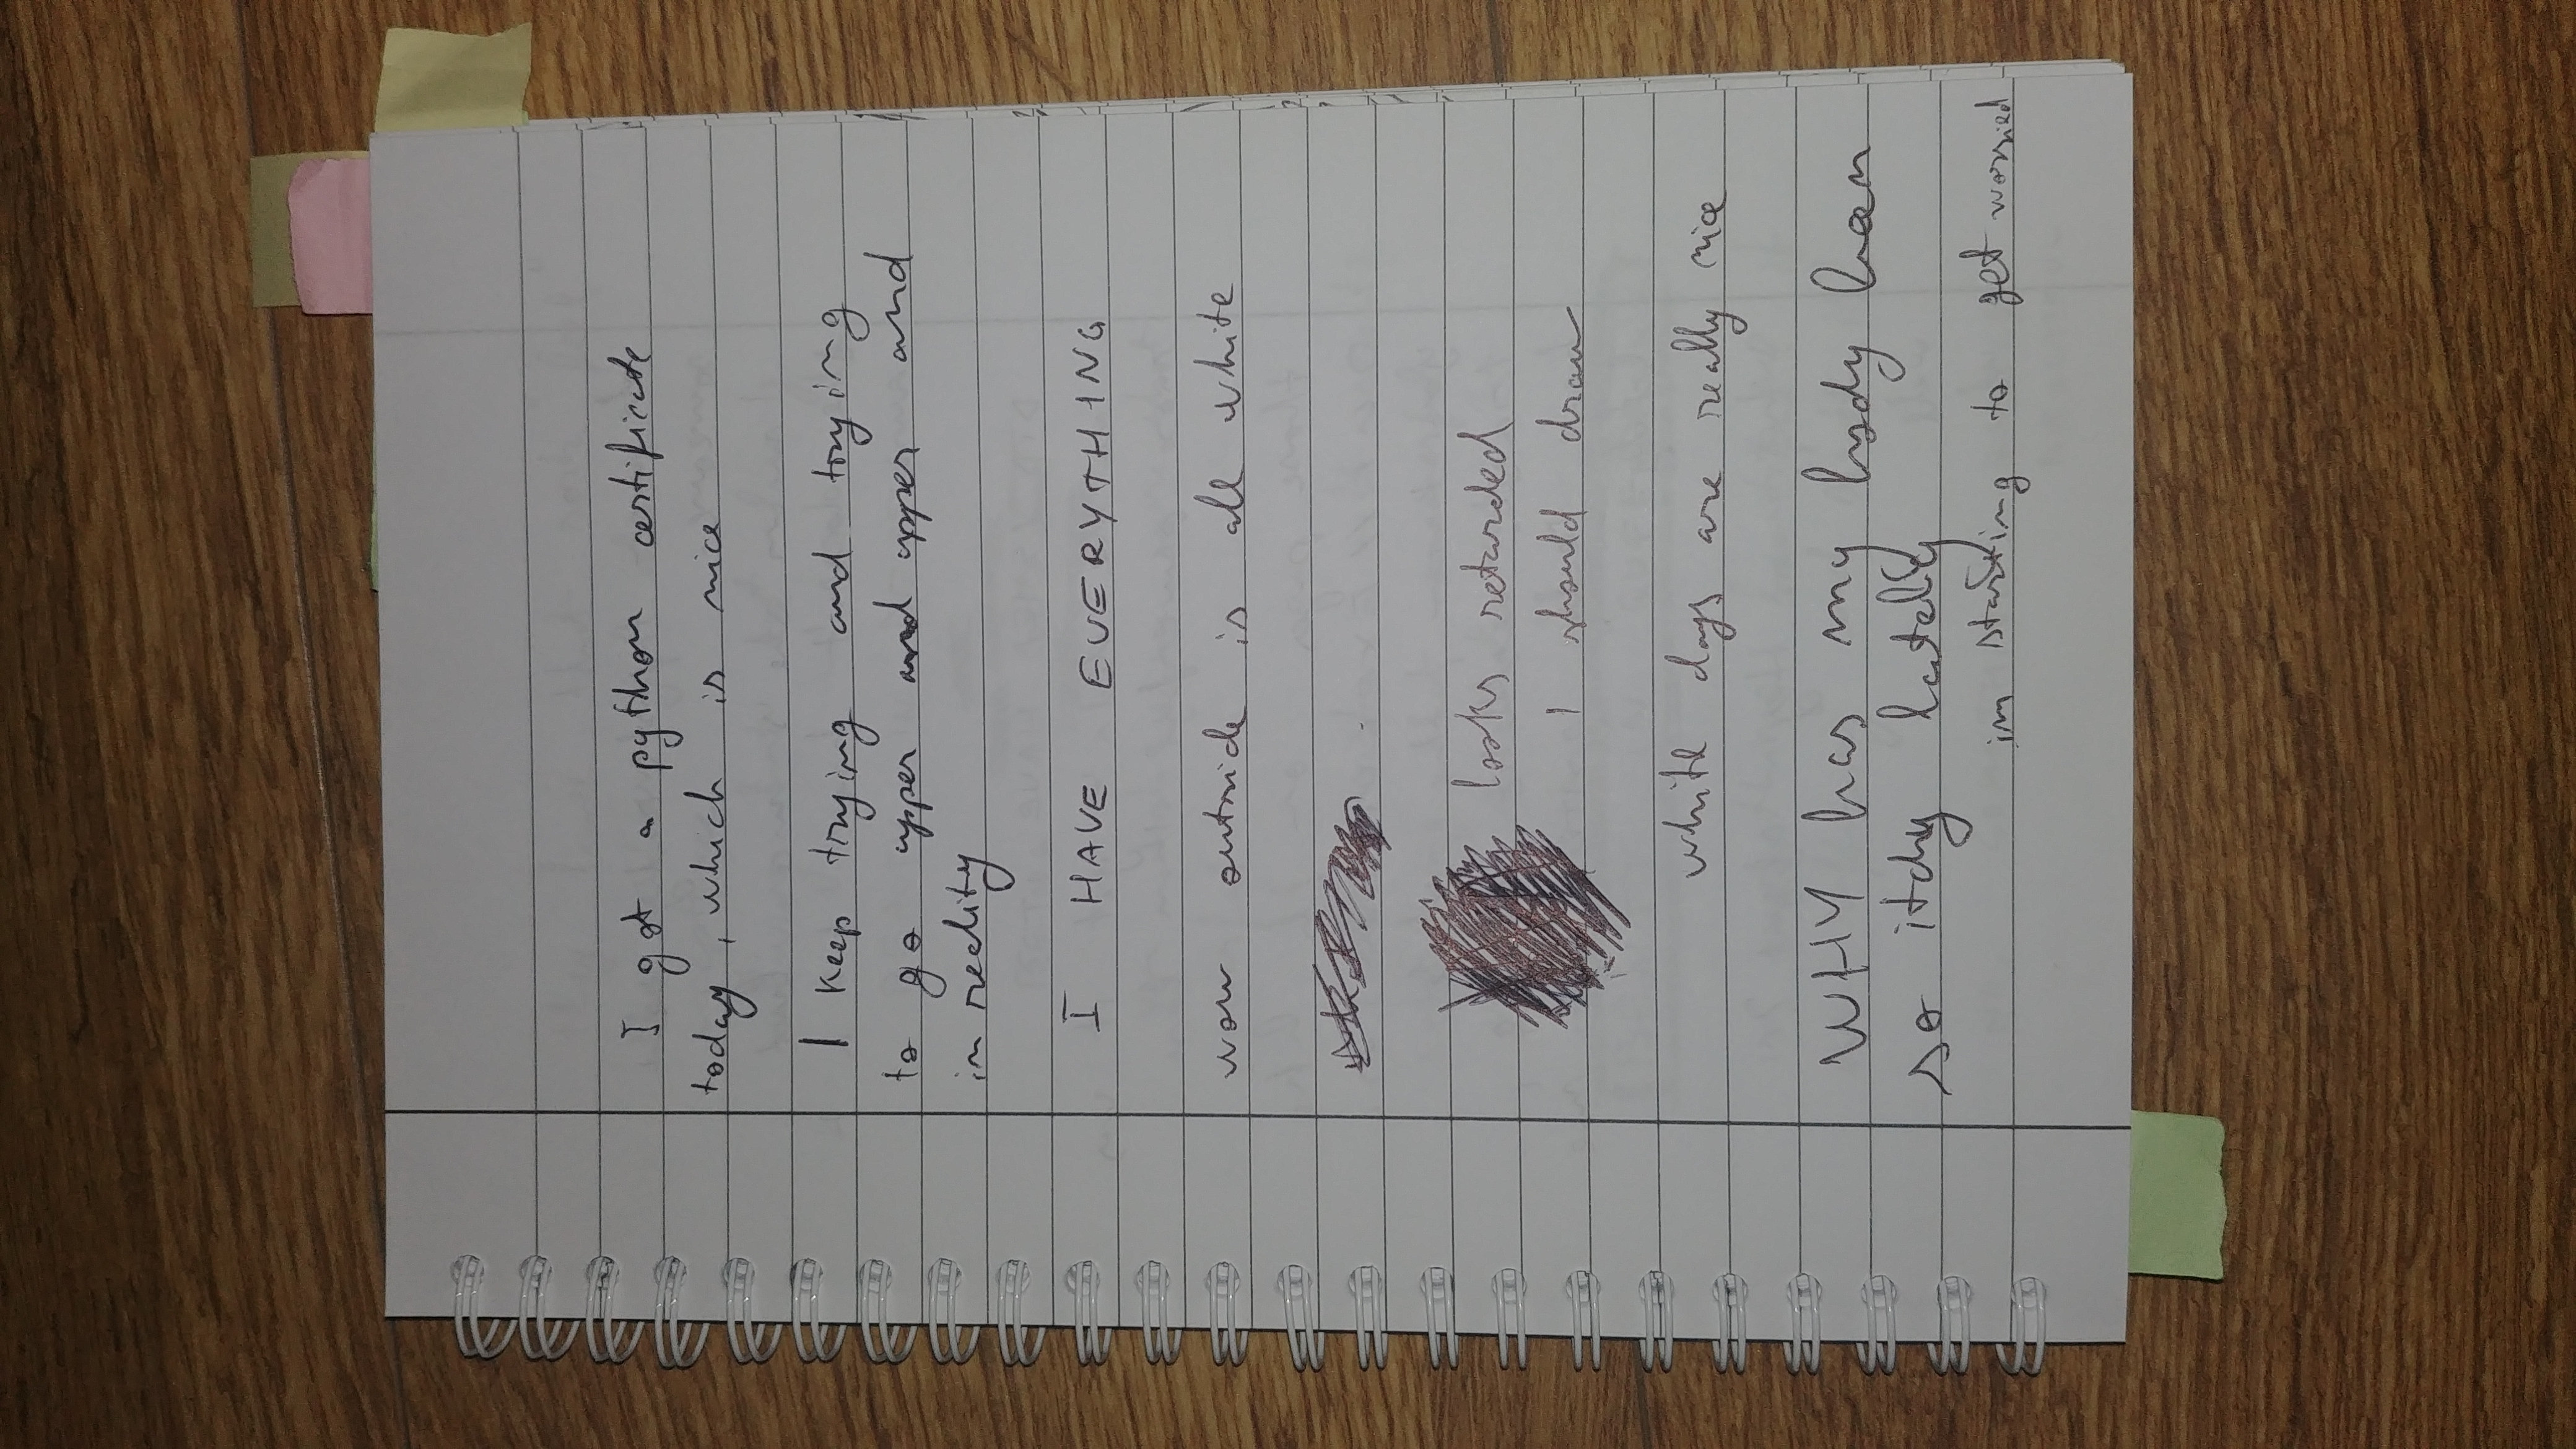 I got a python certificate
today, which is nice
I keep trying and trying
to go upper and upper and
in reality
I HAVE EVERYTHING
wow outside is all white
looks retarded
I should draw
white days are really nice
WHY has my body been
so itchy lately
im starting to get worried